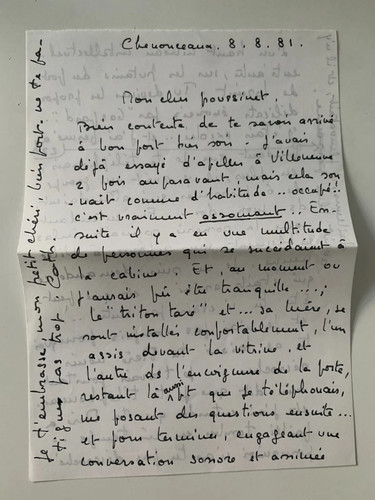 Chenonceaux. 8. 8. 81.
Mon cher poussinet,
Bien contente de te savoir arrivé
à bon port hier soir. J'avais
déjà essayé d'appeler à Villeneuve
2 fois auparavant, mais cela son
-nait comme d'habitude.. occupé!
c'est vraiment assomant.. En-
suite il y a eu une multitude
de personnes qui se succédaient à
la cabine. Et, au moment où
j'aurais pu être tranquille....;
le "triton taré" et... sa mère, se
sont installés confortablement, l'un
assis devant la vitrine, et
l'autre ds l'encoignure de la porte,
restant là aussi lgt que je téléphonais,
me posant des questions ensuite...
et pour terminer, engageant une
conversation sonore et animée
Je t'embrasse mon petit chéri, bien fort. ne te fa-
tigue pas trop